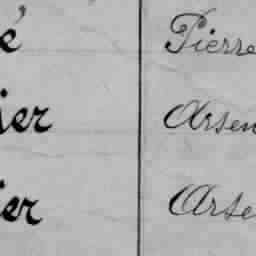 é Pierre
ier Arsen
ier Arse